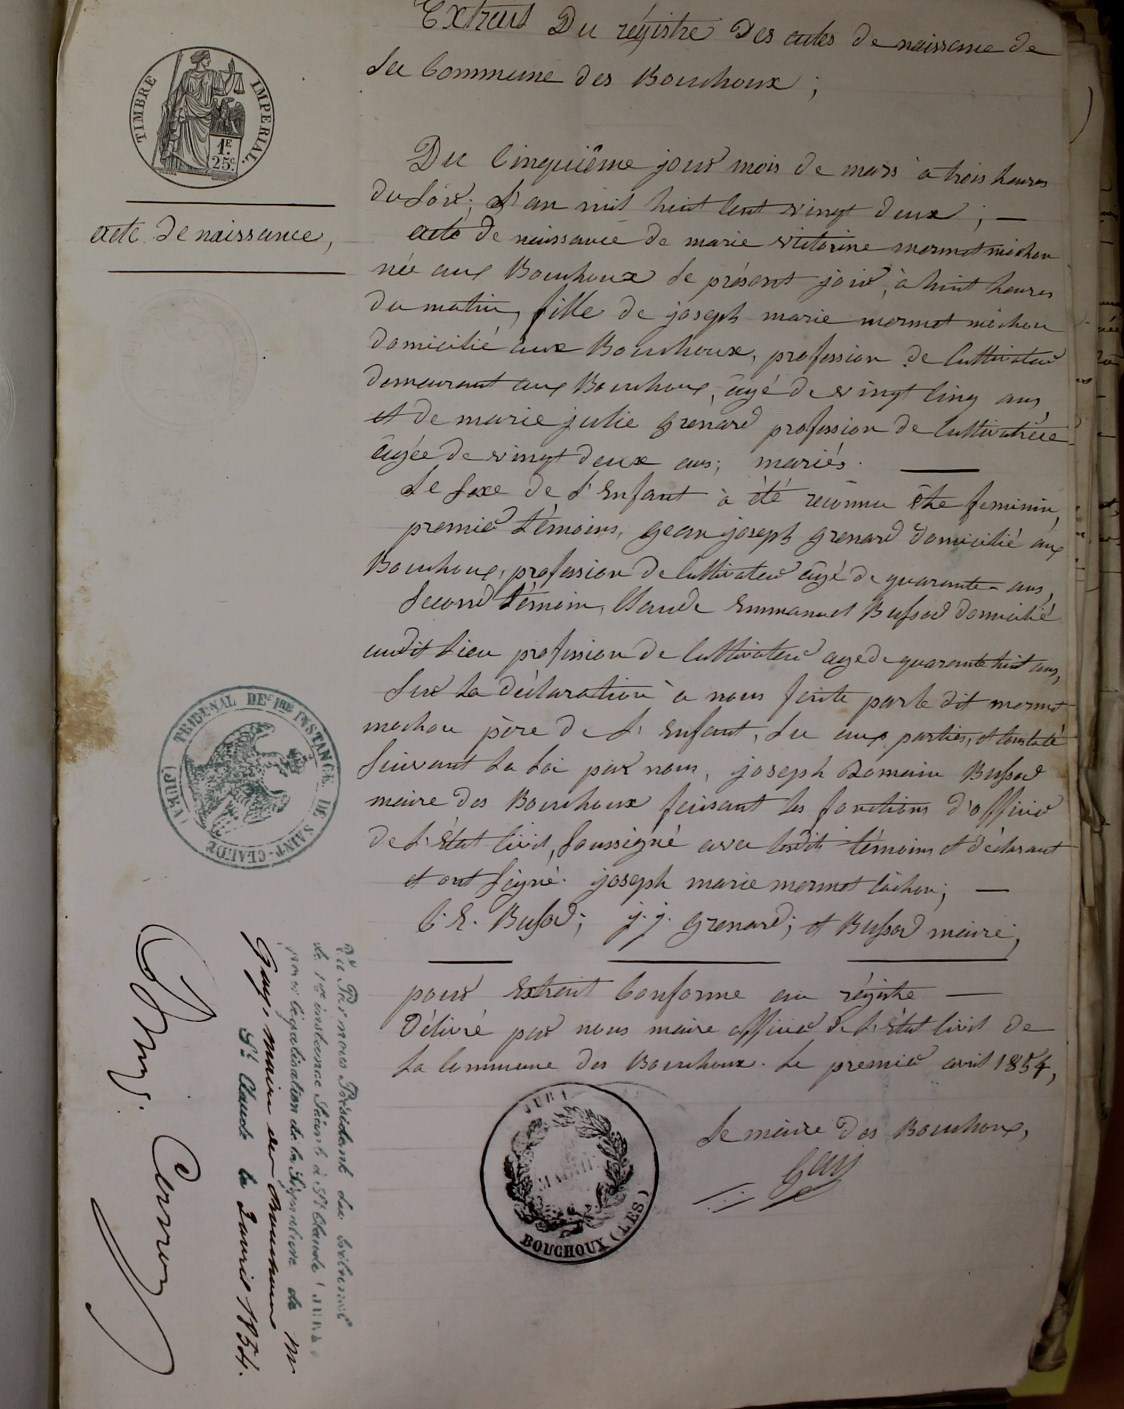 Extrait Du régistre Des actes de naissance de
La Commune des Bouchoux ;
TIMBRE IMPERIAL.
1F.
25c
acte De naissance,
Du Cinquiême jour mois de mars à trois heures
du Soir; L'an mil huit Cent vingt deux ; —
acte de naissance de marie victorine mermet méchon
née aux Bouchoux Le présent jour, à huit heures
du matin, fille de joseph marie mermet méchon
domicilié aux Bouchoux, profession de Cultivateur
demeurant aux Bouchoux, âgé de vingt Cinq ans,
et de marie julie grenard profession de Cultivatrice
âgée de vingt deux ans; mariés. —
Le Sexe de L'Enfant à été reconnu être feminin,
premier témoins, gean joseph grenard Domicilié aux
Bouchoux, profession de Cultivateur âgé de quarante ans,
Second témoin, Claude Emmanuel Bussod domicilié
audit Lieu profession de Cultivateur age de quarante huit ans,
Sur La déclaration à nous faite par le dit mermet
mechon père de L'Enfant, Lu aux parties, et Constaté
Suivant La Loi par nous, joseph Romain Bussod
maire des Bouchoux faisant les fonctions d'officier
de L'Etat Civil, Soussigné avec lesdits témoins et déclarant
et ont Signé. joseph marie mermet Câchon; —
C. E. Bussod; j. j. grenard; et Bussod maire;
pour Extrait Conforme au régistre —
Délivré par nous maire officier de L'état Civil de
La Commune des Bouchoux. Le premier avril 1854,
Le maire Des Bouchoux,
Gay
JURA
MAIRIE
BOUCHOUX (LES)
TRIBUNAL DE 1ERE INSTANCE DE SAINT-CLAUDE
(JURA)
Vu Par nous Président du tribunal
de 1re instance Séant à St Claude (JURA)
pour légalisation de la Signature de Mr
Gay, maire des Bouchoux
St Claude le 2 avril 1854.